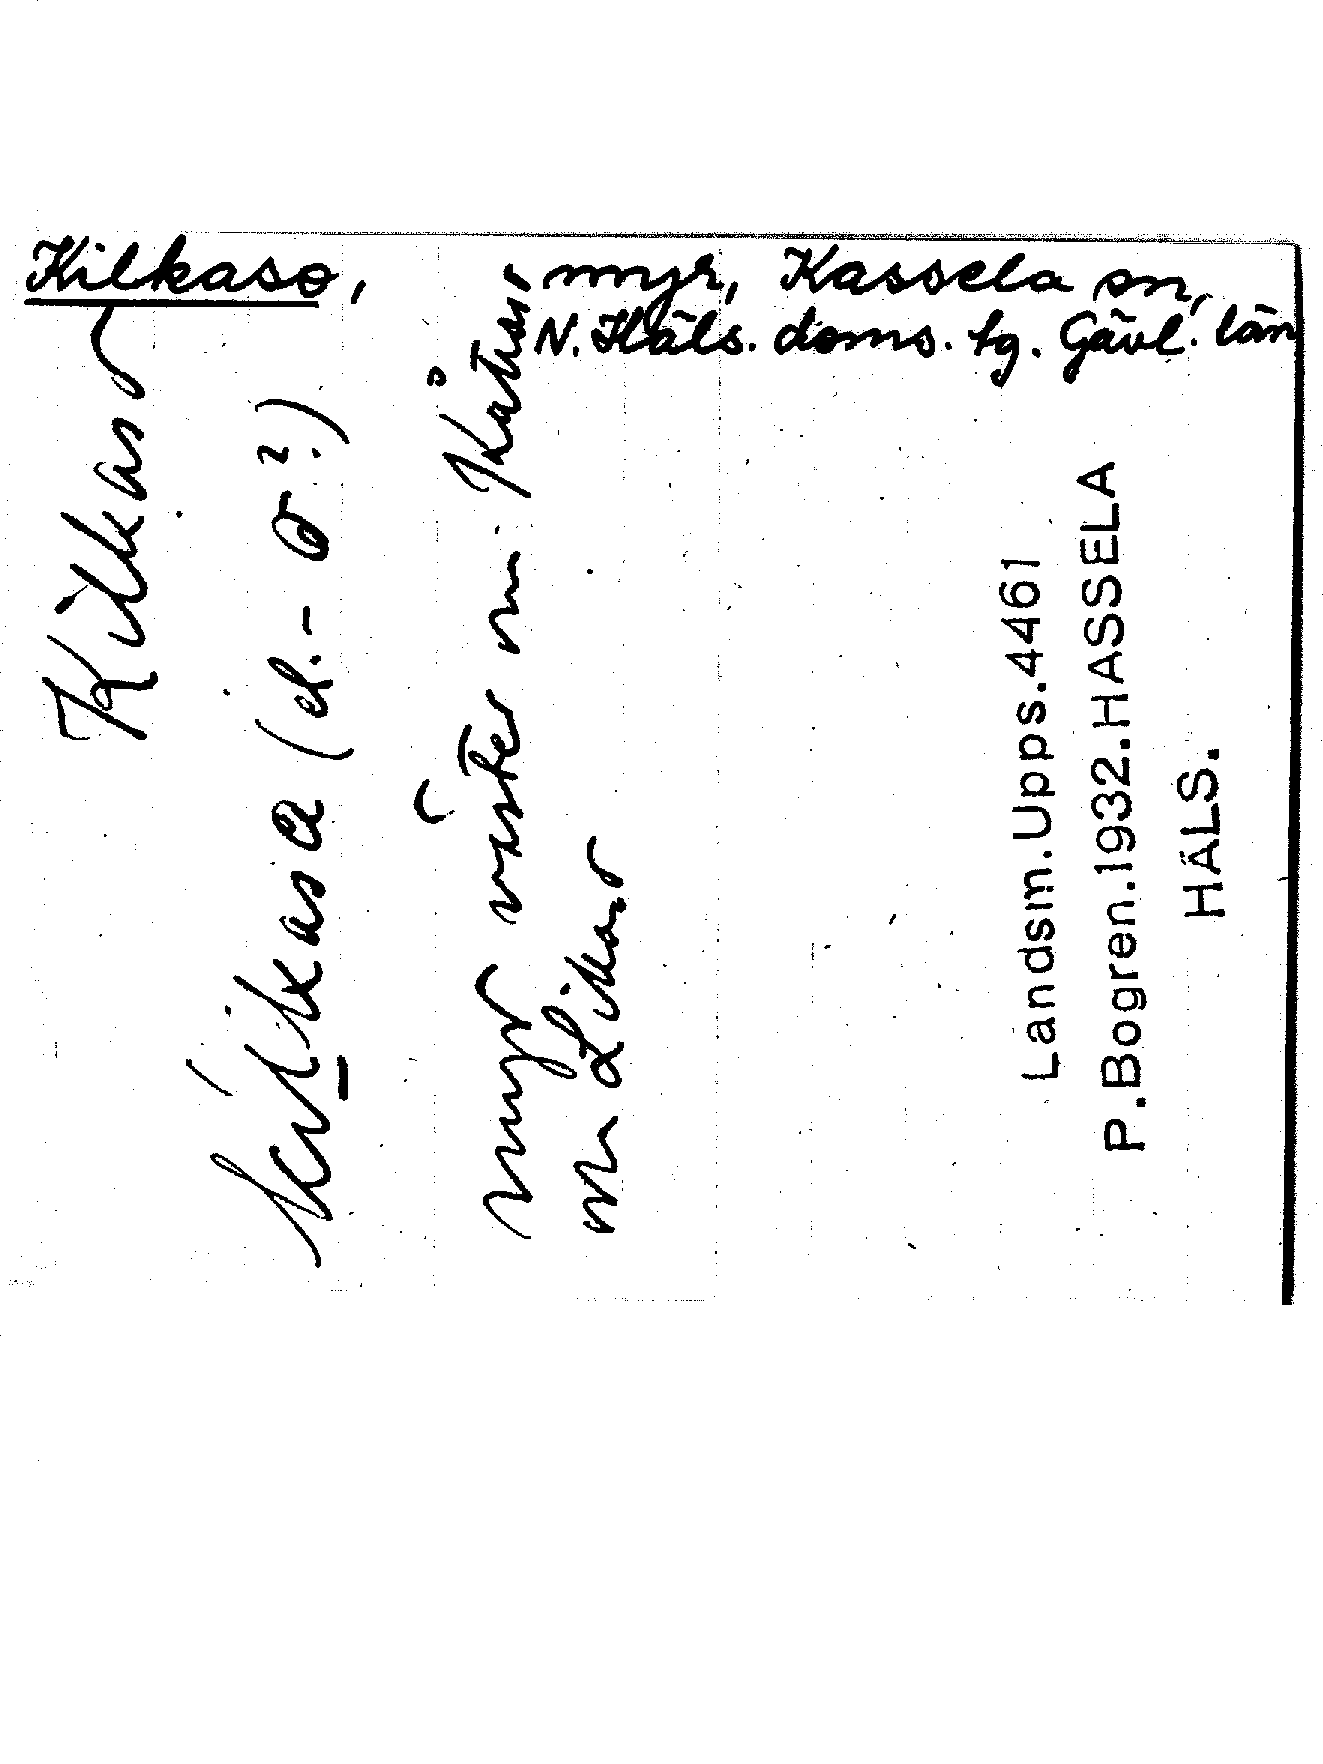 Kilkaso, myr, Hassela sn,
N. Häls. doms. tg. Gävl. län
Kilkaso
(el. - o?)
myr väster om
om Likaso
Landsm. Upps. 4461
P. Bogren. 1932. HASSELA
HÄLS.